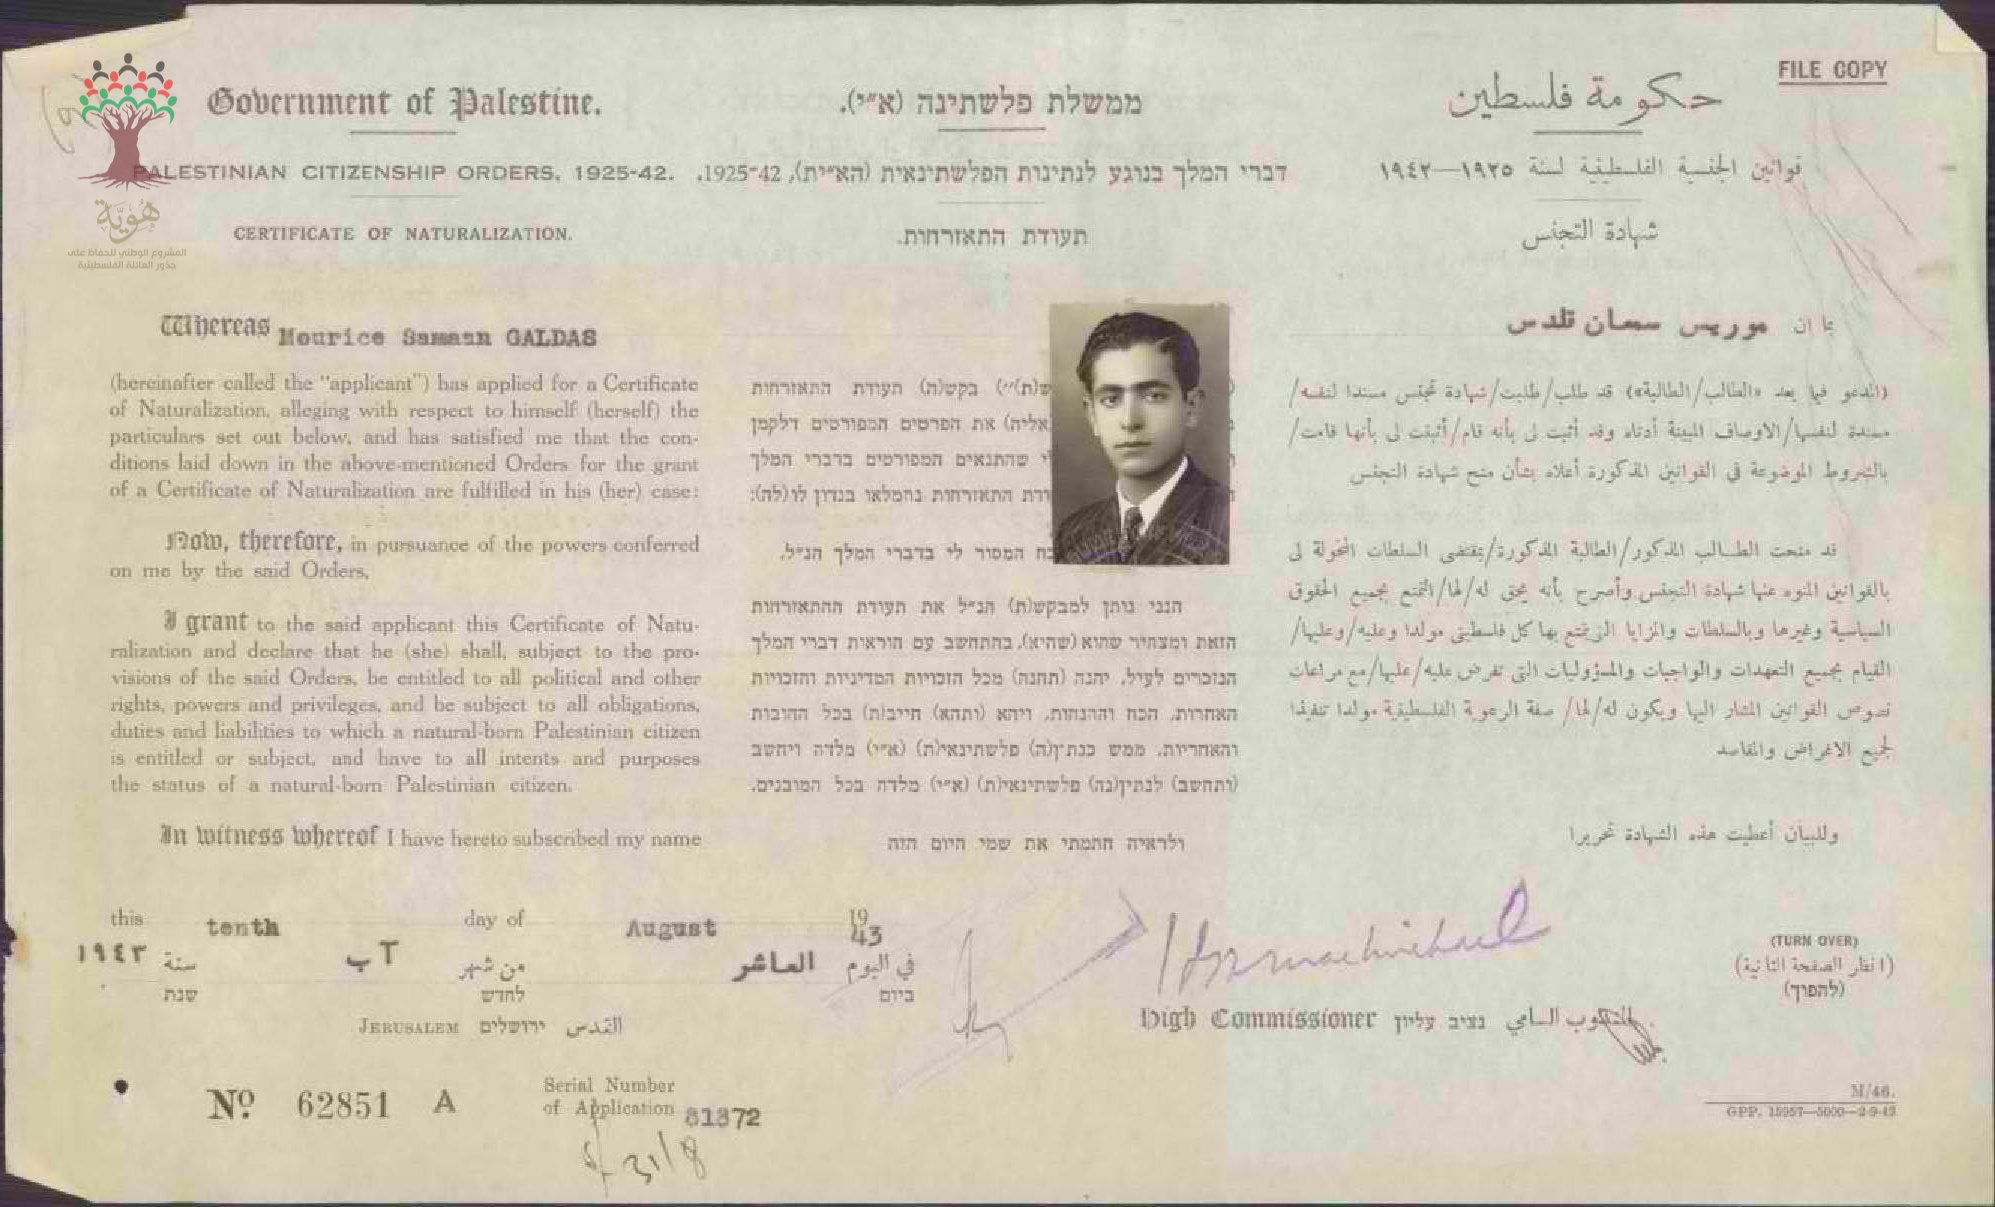 FILE COPY
هُوِيَّة
المشروع الوطني للحفاظ على
جذور العائلة الفلسطينية
Government of Palestine.
PALESTINIAN CITIZENSHIP ORDERS, 1925-42.
CERTIFICATE OF NATURALIZATION.
Whereas Mourice Samaan GALDAS
(hereinafter called the "applicant") has applied for a Certificate
of Naturalization, alleging with respect to himself (herself) the
particulars set out below, and has satisfied me that the con-
ditions laid down in the above-mentioned Orders for the grant
of a Certificate of Naturalization are fulfilled in his (her) case:
Now, therefore, in pursuance of the powers conferred
on me by the said Orders,
I grant to the said applicant this Certificate of Natu-
ralization and declare that he (she) shall, subject to the pro-
visions of the said Orders, be entitled to all political and other
rights, powers and privileges, and be subject to all obligations,
duties and liabilities to which a natural-born Palestinian citizen
is entitled or subject, and have to all intents and purposes
the status of a natural-born Palestinian citizen.
In witness whereof I have hereto subscribed my name
ממשלת פלשתינה (א״י).
דברי המלך בנוגע לנתינות הפלשתינאית (הא״ית), 1925-42.
תעודת התאזרחות.
ש(ת)״) בקש(ה) תעודת התאזרחות
אליה) את הפרטים המפורטים דלקמן
שהתנאים המפורטים בדברי המלך
התאזרחות נתמלאו בנדון לו(לה):
המסור לי בדברי המלך הנ״ל.
הנני נותן למבקש(ת) הנ״ל את תעודת ההתאזרחות
הזאת ומצהיר שהוא (שהיא), בהתחשב עם הוראות דברי המלך
הנזכרים לעיל, יהנה (תהנה) מכל הזכויות המדיניות והזכויות
האחרות, הכח וההנחות, ויהא (ותהא) חייב(ת) בכל החובות
והאחריות, ממש כנתין(ה) פלשתינאי(ת) (א״י) מלדה ויחשב
(ותחשב) לנתין(נה) פלשתינאי(ת) (א״י) מלדה בכל המובנים.
ולראיה חתמתי את שמי היום הזה
حكومة فلسطين
قوانين الجنسية الفلسطينية لسنة ١٩٢٥—١٩٤٢
شهادة التجنس
بما ان موريس سمعان تلدس
(المدعو فيما بعد «الطالب/الطالبة») قد طلب/طلبت/شهادة تجنس مسندا لنفسه/
مسندة لنفسها/الاوصاف المبينة أدناه وقد أثبت لي بأنه قام/أثبتت لي بأنها قامت/
بالشروط الموضوعة في القوانين المذكورة أعلاه بشأن منح شهادة التجنس
قد منحت الطالب المذكور/الطالبة المذكورة/بمقتضى السلطات المخولة لي
بالقوانين المنوه عنها شهادة التجنس وأصرح بأنه يحق له/لها/التمتع بجميع الحقوق
السياسية وغيرها وبالسلطات والمزايا التي يتمتع بها كل فلسطيني مولدا وعليه/وعليها/
القيام بجميع التعهدات والواجبات والمسؤوليات التي تفرض عليه/عليها/مع مراعات
نصوص القوانين المشار اليها ويكون له/لها/ صفة الرعوية الفلسطينية مولدا تنفيذا
لجميع الاغراض والمقاصد
وللبيان أعطيت هذه الشهادة تحريرا
this tenth day of August 1943
في اليوم العاشر من شهر آب سنة ١٩٤٣
ביום לחדש שנת
JERUSALEM ירושלים القدس
High Commissioner נציב עליון المندوب السامي
(TURN OVER)
(انظر الصفحة الثانية)
(להפוך)
No. 62851 A
Serial Number
of Application 81872
31/8
M/46.